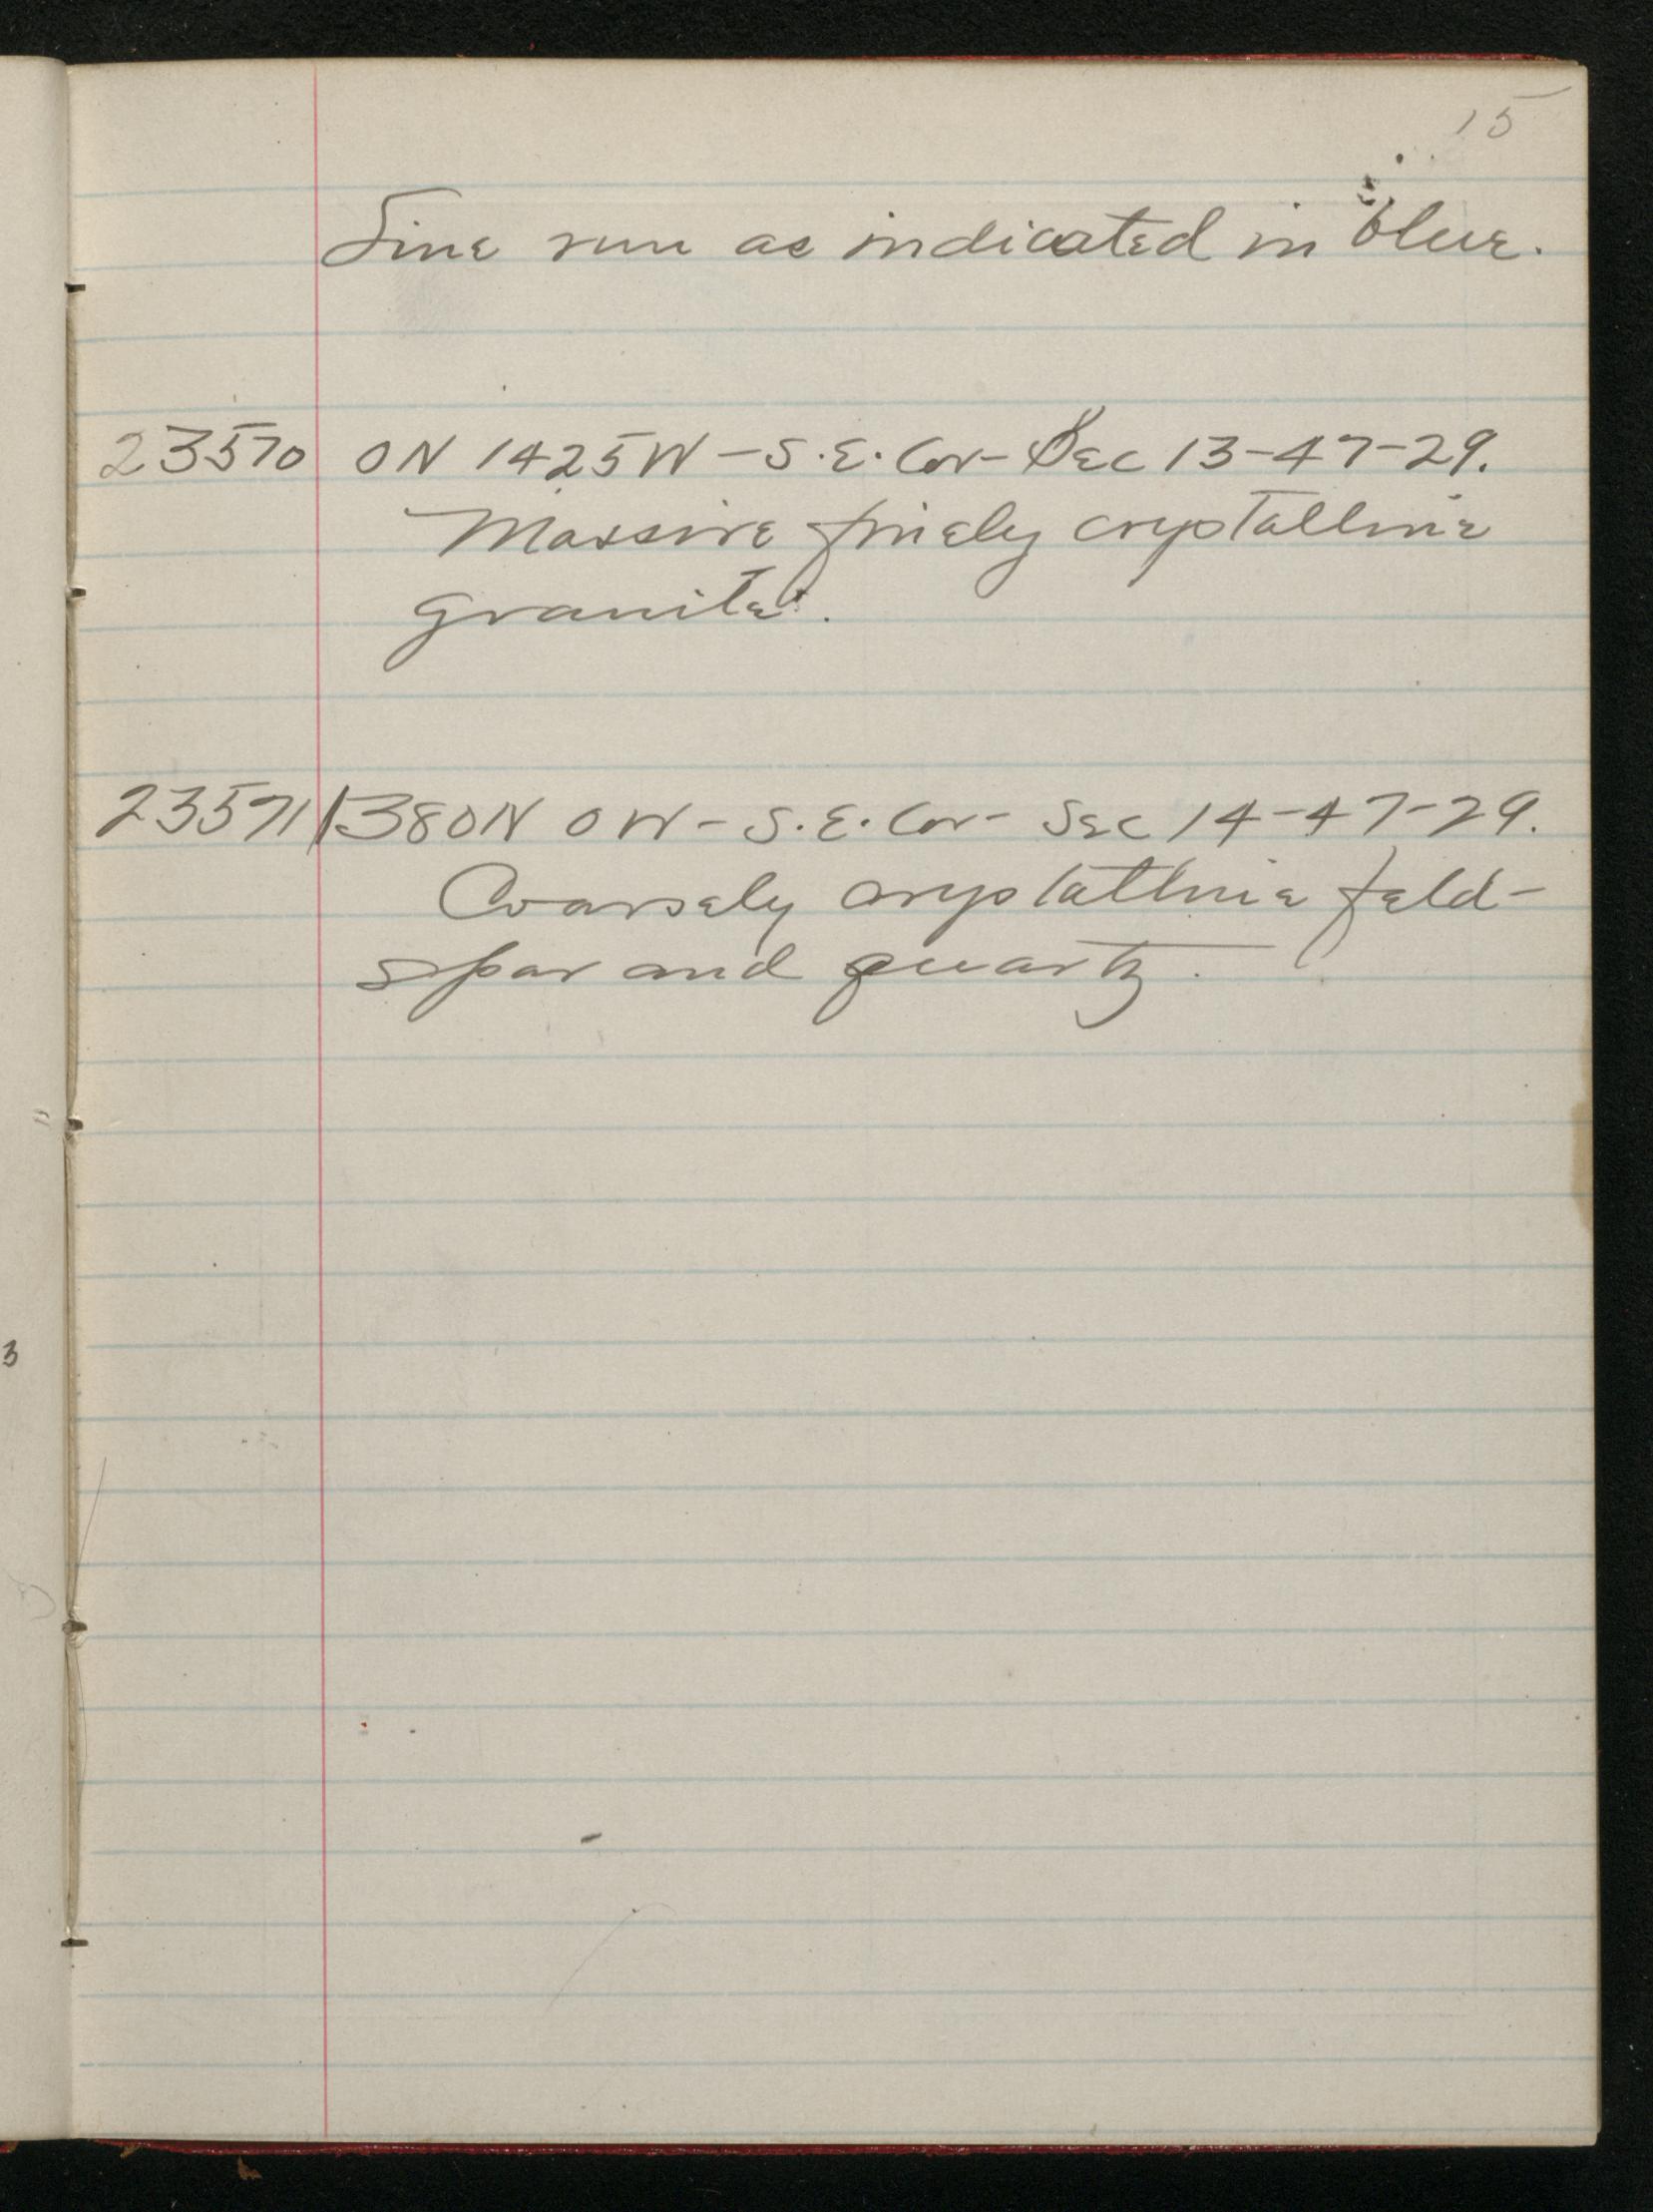 15
Line run as indicated in blue.
23570 0N 1425W - S.E. Cor - Sec 13-47-29.
Massive finely crystalline
granite.
23571 1380N 0W - S.E. Cor - Sec 14-47-29.
Coarsely crystalline feld-
spar and quartz.
3